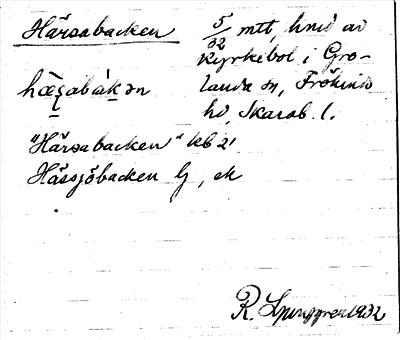 Härsabacken
5/32 mtl, hmd av
Kyrkebol i Gro-
landa sn, Frökinds
hd, Skarab. l.
hæ̀ṣabák̠ən
"Härsabacken" kb 21
Hässjöbacken lj, ek
R. Ljunggren 1932